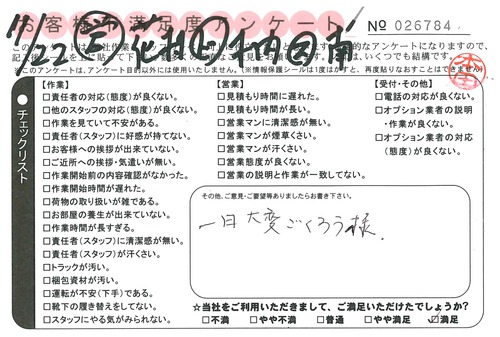 お客様不満足度アンケート
№ 026784
7/22
※このアンケートは、アンケート目的以外には使用いたしません。(※情報保護シールは1度はがすと、再度貼りなおすことはできません)
チェックリスト
【作業】
□責任者の対応(態度)が良くない。
□他のスタッフの対応(態度)が良くない。
□作業を見ていて不安がある。
□責任者(スタッフ)に好感が持てない。
□お客様への挨拶が出来ていない。
□ご近所への挨拶・気遣いが無い。
□作業開始前の内容確認がなかった。
□作業開始時間が遅れた。
□荷物の取り扱いが雑である。
□お部屋の養生が出来ていない。
□作業時間が長すぎる。
□責任者(スタッフ)に清潔感が無い。
□責任者(スタッフ)が汗くさい。
□トラックが汚い。
□梱包資材が汚い。
□運転が不安(下手)である。
□靴下の履き替えをしてない。
□スタッフにやる気がみられない。
【営業】
□見積もり時間に遅れた。
□見積もり時間が長い。
□営業マンに清潔感が無い。
□営業マンが煙草くさい。
□営業マンが汗くさい。
□営業態度が良くない。
□営業の説明と作業が一致してない。
【受付・その他】
□電話の対応が良くない。
□オプション業者の説明
・作業が良くない。
□オプション業者の対応
(態度)が良くない。
その他、ご意見・ご要望等ありましたらお書き下さい。
一日大変ごくろう様。
☆当社をご利用いただきまして、ご満足いただけたでしょうか?
□不満 □やや不満 □普通 □やや満足 ☑満足